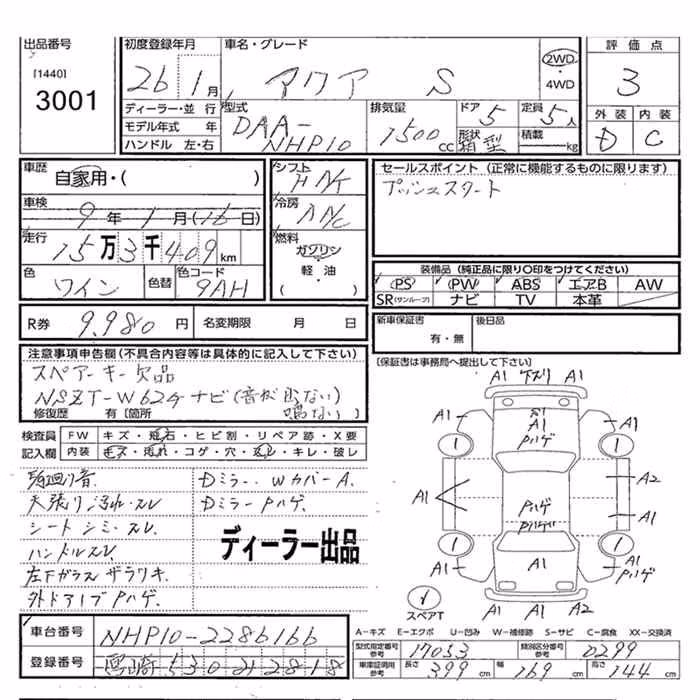 出品番号
[1440]
3001
初度登録年月
26年 1月
ディーラー・並行
モデル年式 年
ハンドル 左・右
車名・グレード
アクア S
2WD
・
4WD
型式
DAA-
NHP10
排気量
1500cc
ドア 5
形状 箱型
定員 5人
積載 kg
評価点
3
外装 内装
D C
車歴
自家用・( )
車検
9年 1月(16日)
走行
15万3千409km
色
ワイン
色替
色コード
9AH
シフト
冷房
燃料
ガソリン
・
軽・油
( )
セールスポイント (正常に機能するものに限ります)
プッシュスタート
装備品 (純正品に限り○印をつけてください)
PS PW ABS エアB AW
SR(サンルーフ) ナビ TV 本革
R券 9,980円 名変期限 月 日
新車保証書
有・無
後日品
(保証書は事務局へ提出して下さい)
注意事項申告欄(不具合内容等は具体的に記入して下さい)
スペアーキー欠品
NSZT-W62Gナビ(音が出ない)
修復歴 有 [箇所
鳴ない)
検査員 FW キズ・飛石・ヒビ割・リペア跡・X要
記入欄 内装 キズ・汚れ・コゲ・穴・スレ・キレ・破レ
天張り汚れ・スレ
シートシミ・スレ
ハンドルスレ
左下ガラスザラツキ
外ドアノブPハゲ
Dミラー、WカバーA
DミラーPハゲ
ディーラー出品
A1 下スリ A1
A1
A1
Pハゲ
A1
A1
A2
A1
Pハゲ
A1
A1
A1
A1
Pハゲ
A1 A2 A1
スペアT
A-キズ E-エクボ U-凹み W-補修跡 S-サビ C-腐食 XX-交換済
車台番号 NHP10-2286166
登録番号 宮崎 530 2 2818
型式指定番号 参考 17053 類別区分番号 参考 0299
車庫証明用 参考 長さ 399cm 幅 169cm 高さ 144cm